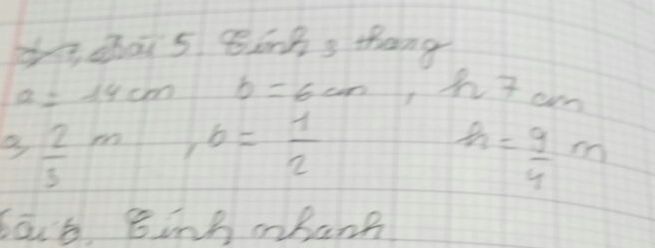 Bài 5. Tính S thang
a = 14 cm b = 6 cm, h 7 cm
a, 2/3 m, b = 1/2 h = 9/4 m
Bài 6. Tính nhanh